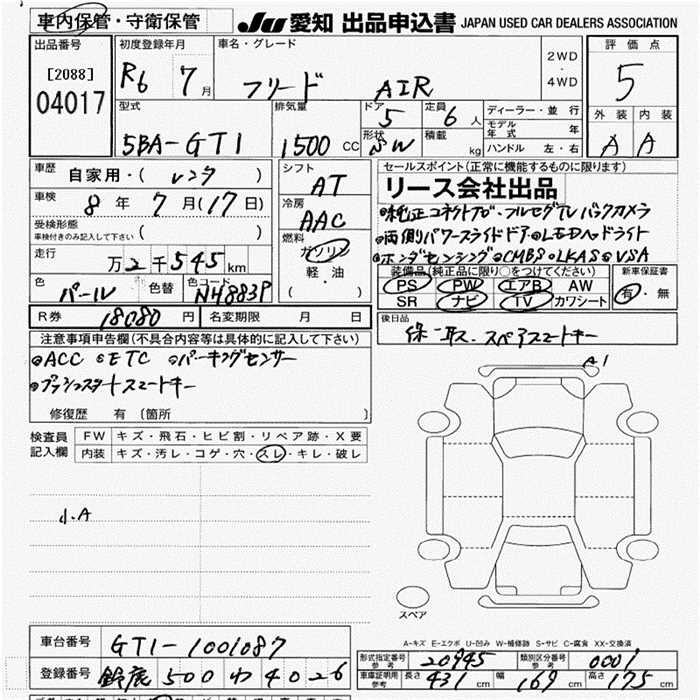 車内保管・守衛保管 JU 愛知 出品申込書 JAPAN USED CAR DEALERS ASSOCIATION
出品番号 初度登録年月 車名・グレード 2WD・4WD 評価点
[2088] 04017 R6 7月 フリード AIR 5
型式 排気量 ドア 5 定員 6人 ディーラー・並行 外装 内装
5BA-GT1 1500cc 形状 SW 積載 kg モデル年式 年 A A
ハンドル 左・右
車歴 自家用・( レンタ ) シフト AT セールスポイント(正常に機能するものに限ります)
車検 8年 7月(17日) 冷房 AAC リース会社出品
受検形態 ( ) 純正コネクトナビ・フルセグTVバックカメラ
車検付きのみ記入して下さい 燃料 ガソリン 両側パワースライドドア LEDヘッドライト
走行 万2千545km 軽・油 ホンダセンシング CMBS LKAS VSA
色 パール 色替 色コード NH883P ( ) 装備品(純正品に限り○をつけてください) 新車保証書
PS PW エアB AW 有・無
SR ナビ TV カワシート
R券 18080円 名変期限 月 日 後日品
注意事項申告欄(不具合内容等は具体的に記入して下さい) 保・取・スペアスマートキー
ACC ETC パーキングセンサー A1
プッシュスタートスマートキー
修復歴 有 〔箇所 〕
検査員記入欄 FW キズ・飛石・ヒビ割・リペア跡・X要
内装 キズ・汚レ・コゲ・穴・スレ・キレ・破レ
小.A
スペア
A-キズ E-エクボ U-凹み W-補修跡 S-サビ C-腐食 XX-交換済
車台番号 GT1-1001087
形式指定番号 参考 20945 類別区分番号 参考 0001
登録番号 鈴鹿 500 わ 4026
車庫証明用 参考 長さ 431cm 幅 169cm 高さ 175cm